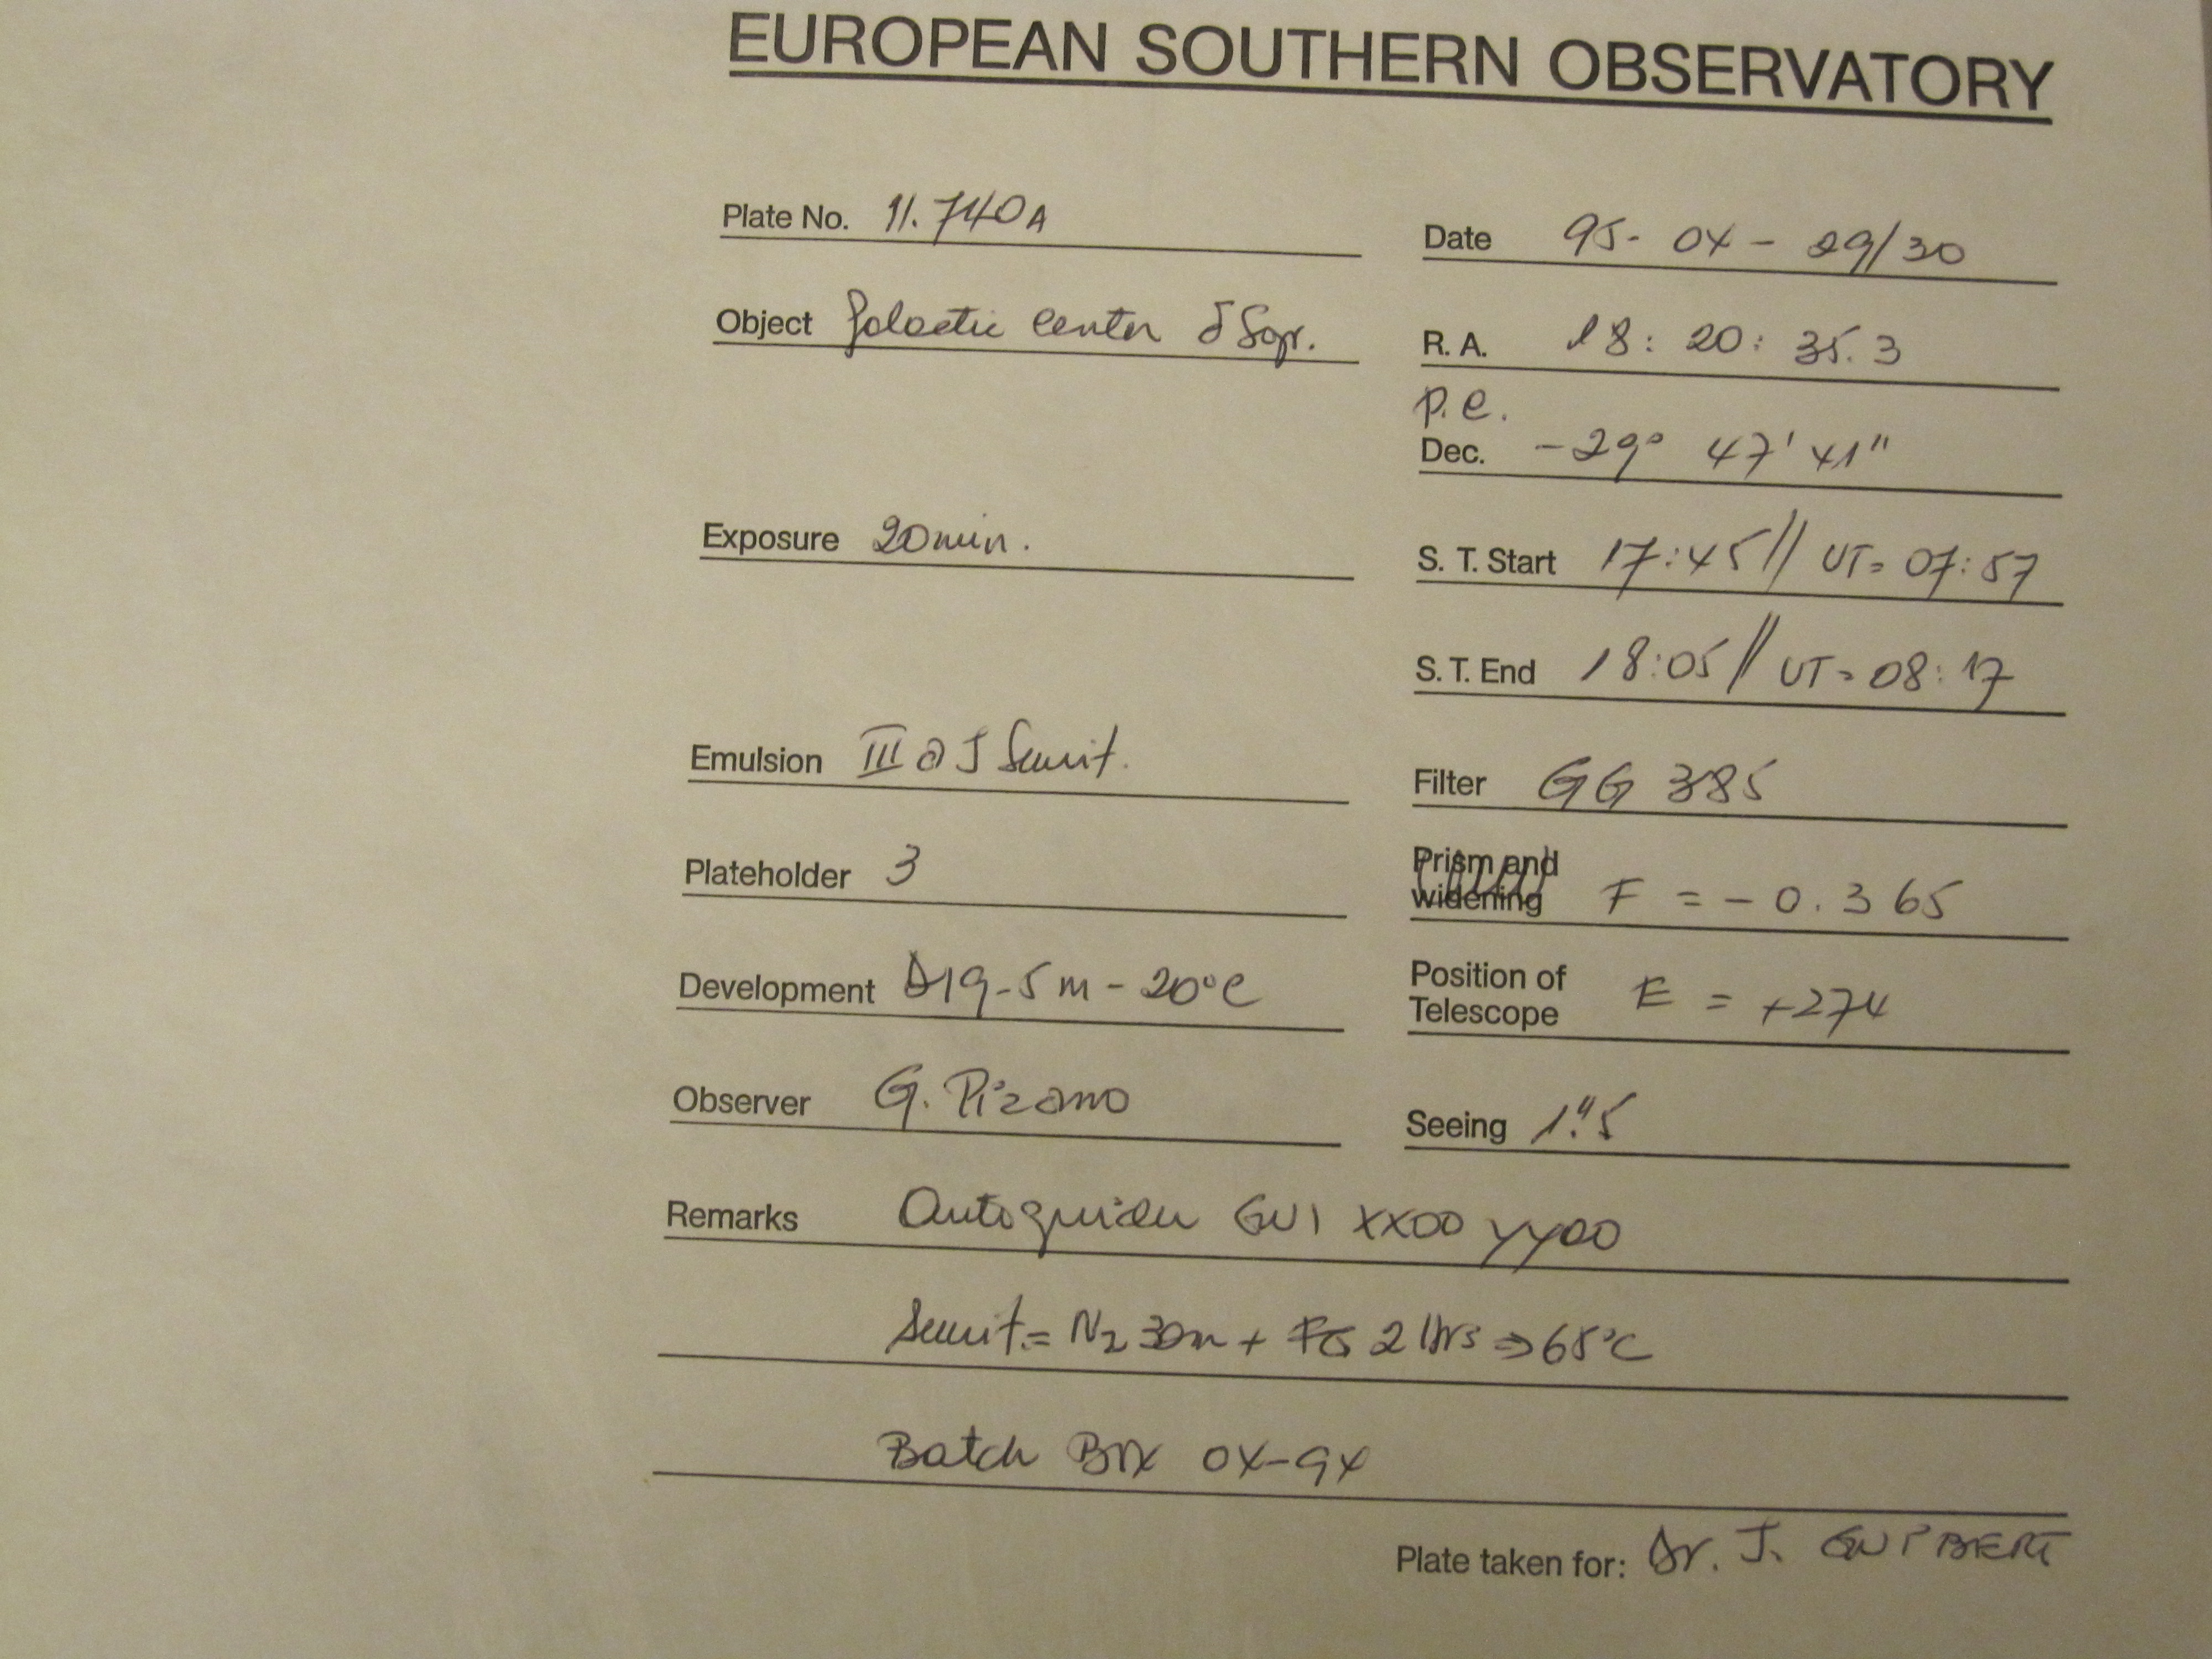 EUROPEAN SOUTHERN OBSERVATORY
Plate No. 11.740A
Date 95-04-29/30
Object Galactic center δ Sgr.
R. A. 18: 20: 35.3
p.e.
Dec. -29° 47' 41"
Exposure 20min.
S. T. Start 17:45// UT= 07:57
S. T. End 18:05// UT= 08:17
Emulsion III a J Sensit.
Filter GG 385
Plateholder 3
Prism and widening F = -0.365
Development D19-5m-20°C
Position of Telescope E = +274
Observer G. Pizarro
Seeing 1."5
Remarks Autoguider GUI XX00 YY00
Sensit.= N2 30m + FG 2 Hrs ⇒ 65°C
Batch Box 04-94
Plate taken for: Dr. J. GUIBERT